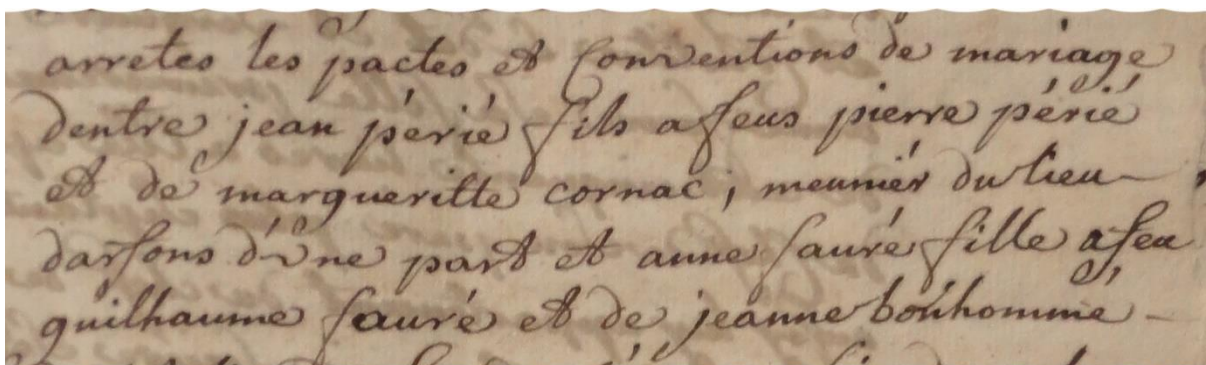 arretes les pactes et conventions de mariage
dentre jean périé fils a feus pierre périé
et de margueritte cornac, meunier du lieu
darsons d'une part et anne sauré fille a feu
guilhaume sauré et de jeanne bonhomme